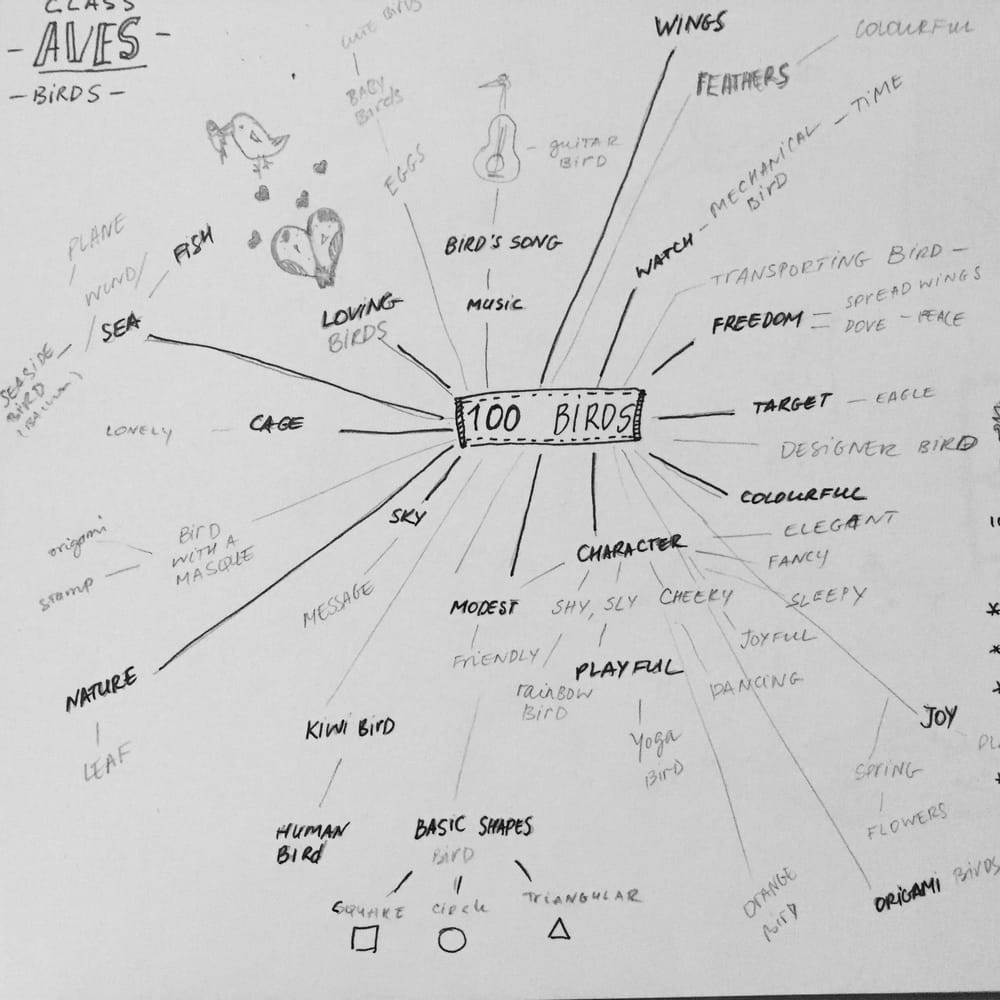 CLASS
- AVES -
- BIRDS -
CUTE BIRDS
BABY
Birds
EGGS
guiTAR
BIRD
BIRD'S SONG
MUSIC
WINGS
FEATHERS
COLOURFUL
WATCH - MECHANICAL - TIME
BIRD
TRANSPORTING BIRD -
FREEDOM
SPREAD WINGS
DOVE - PEACE
PLANE
WIND/
FISH
SEA
SEASIDE
BIRD
LOVING
BIRDS
LONELY
CAGE
100 BIRDS
TARGET - EAGLE
DESIGNER BIRD
COLOURFUL
ELEGANT
FANCY
SLEEPY
SKY
MESSAGE
origami
stamp
BIRD
WITH A
MASQUE
CHARACTER
MODEST
SHY, SLY
CHEERY
JOYFUL
FRIENDLY
PLAYFUL
DANCING
rainbow
BIRD
Yoga
BIRD
NATURE
LEAF
KIWI BIRD
HUMAN
BIRD
BASIC SHAPES
BIRD
SQUARE
circle
TRIANGULAR
JOY
SPRING
FLOWERS
ORANGE
BIRD
ORIGAMI BIRDS